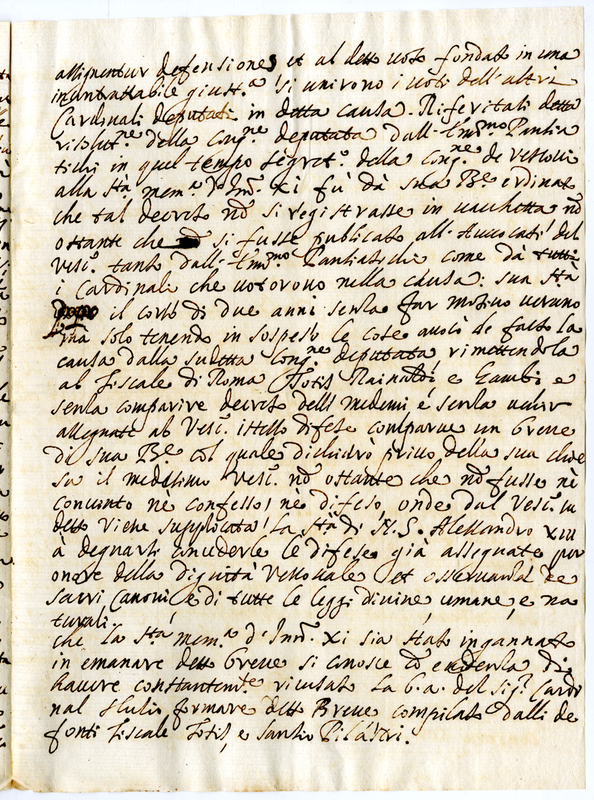 assignentur defensiones et al detto voto fondato in una
incontrastabile giust.a si unirono i voti dell'altri
Cardinali deputati in detta causa. Riferitali detta
risolut.ne della Cong.ne deputata dall'Em.mo Pancia
tichi in quel tempo segret.o della Cong.ne de Vescovi
alla Sta. mem.a d'Inn. XI fù dà sua B.e ordinato
che tal decreto nō si registrasse in vacchetta nō
ostante che si fusse publicato all'Avvocati del
Vesc.o tanto dall'Em.mo Panciatichi come dà tutti
i Cardinali che votorono nella causa: sua Stà
il corso di due anni senza far motivo veruno
ma solo tenendo in sospeso le cose avocò de facto la
causa dalla sudetta Cong.ne deputtata rimettendola
al Fiscale di Roma Rainaldi e Gambi e
senza comparire decreto delli medemi e senza
assegnate al Vesc.o istesso difese comparve un Breve
di sua B.e col quale dichiarò privo della sua chie
sa il medesimo Vesc.o nō ostante che nō fusse nè
convinto nè confesso, nè difeso, onde dal Vesc.o su
detto viene supplicata la Stà di N. S. Alessandro XIII
à degnarsi concederle le difese già assegnate per
onore della dignità Vescovale et osservanza de
sacri Canoni e di tutte le leggi divine, umane, e na
turali.
che la Sta. mem.a d'Inn. XI sia stato ingannato
in emanare detto Breve si conosce
havere constantem.te ricusato la b.a. del sig.r Cardi
nal formare detto Breve compilato dalli de
fonti Fiscale, e Pilastri.